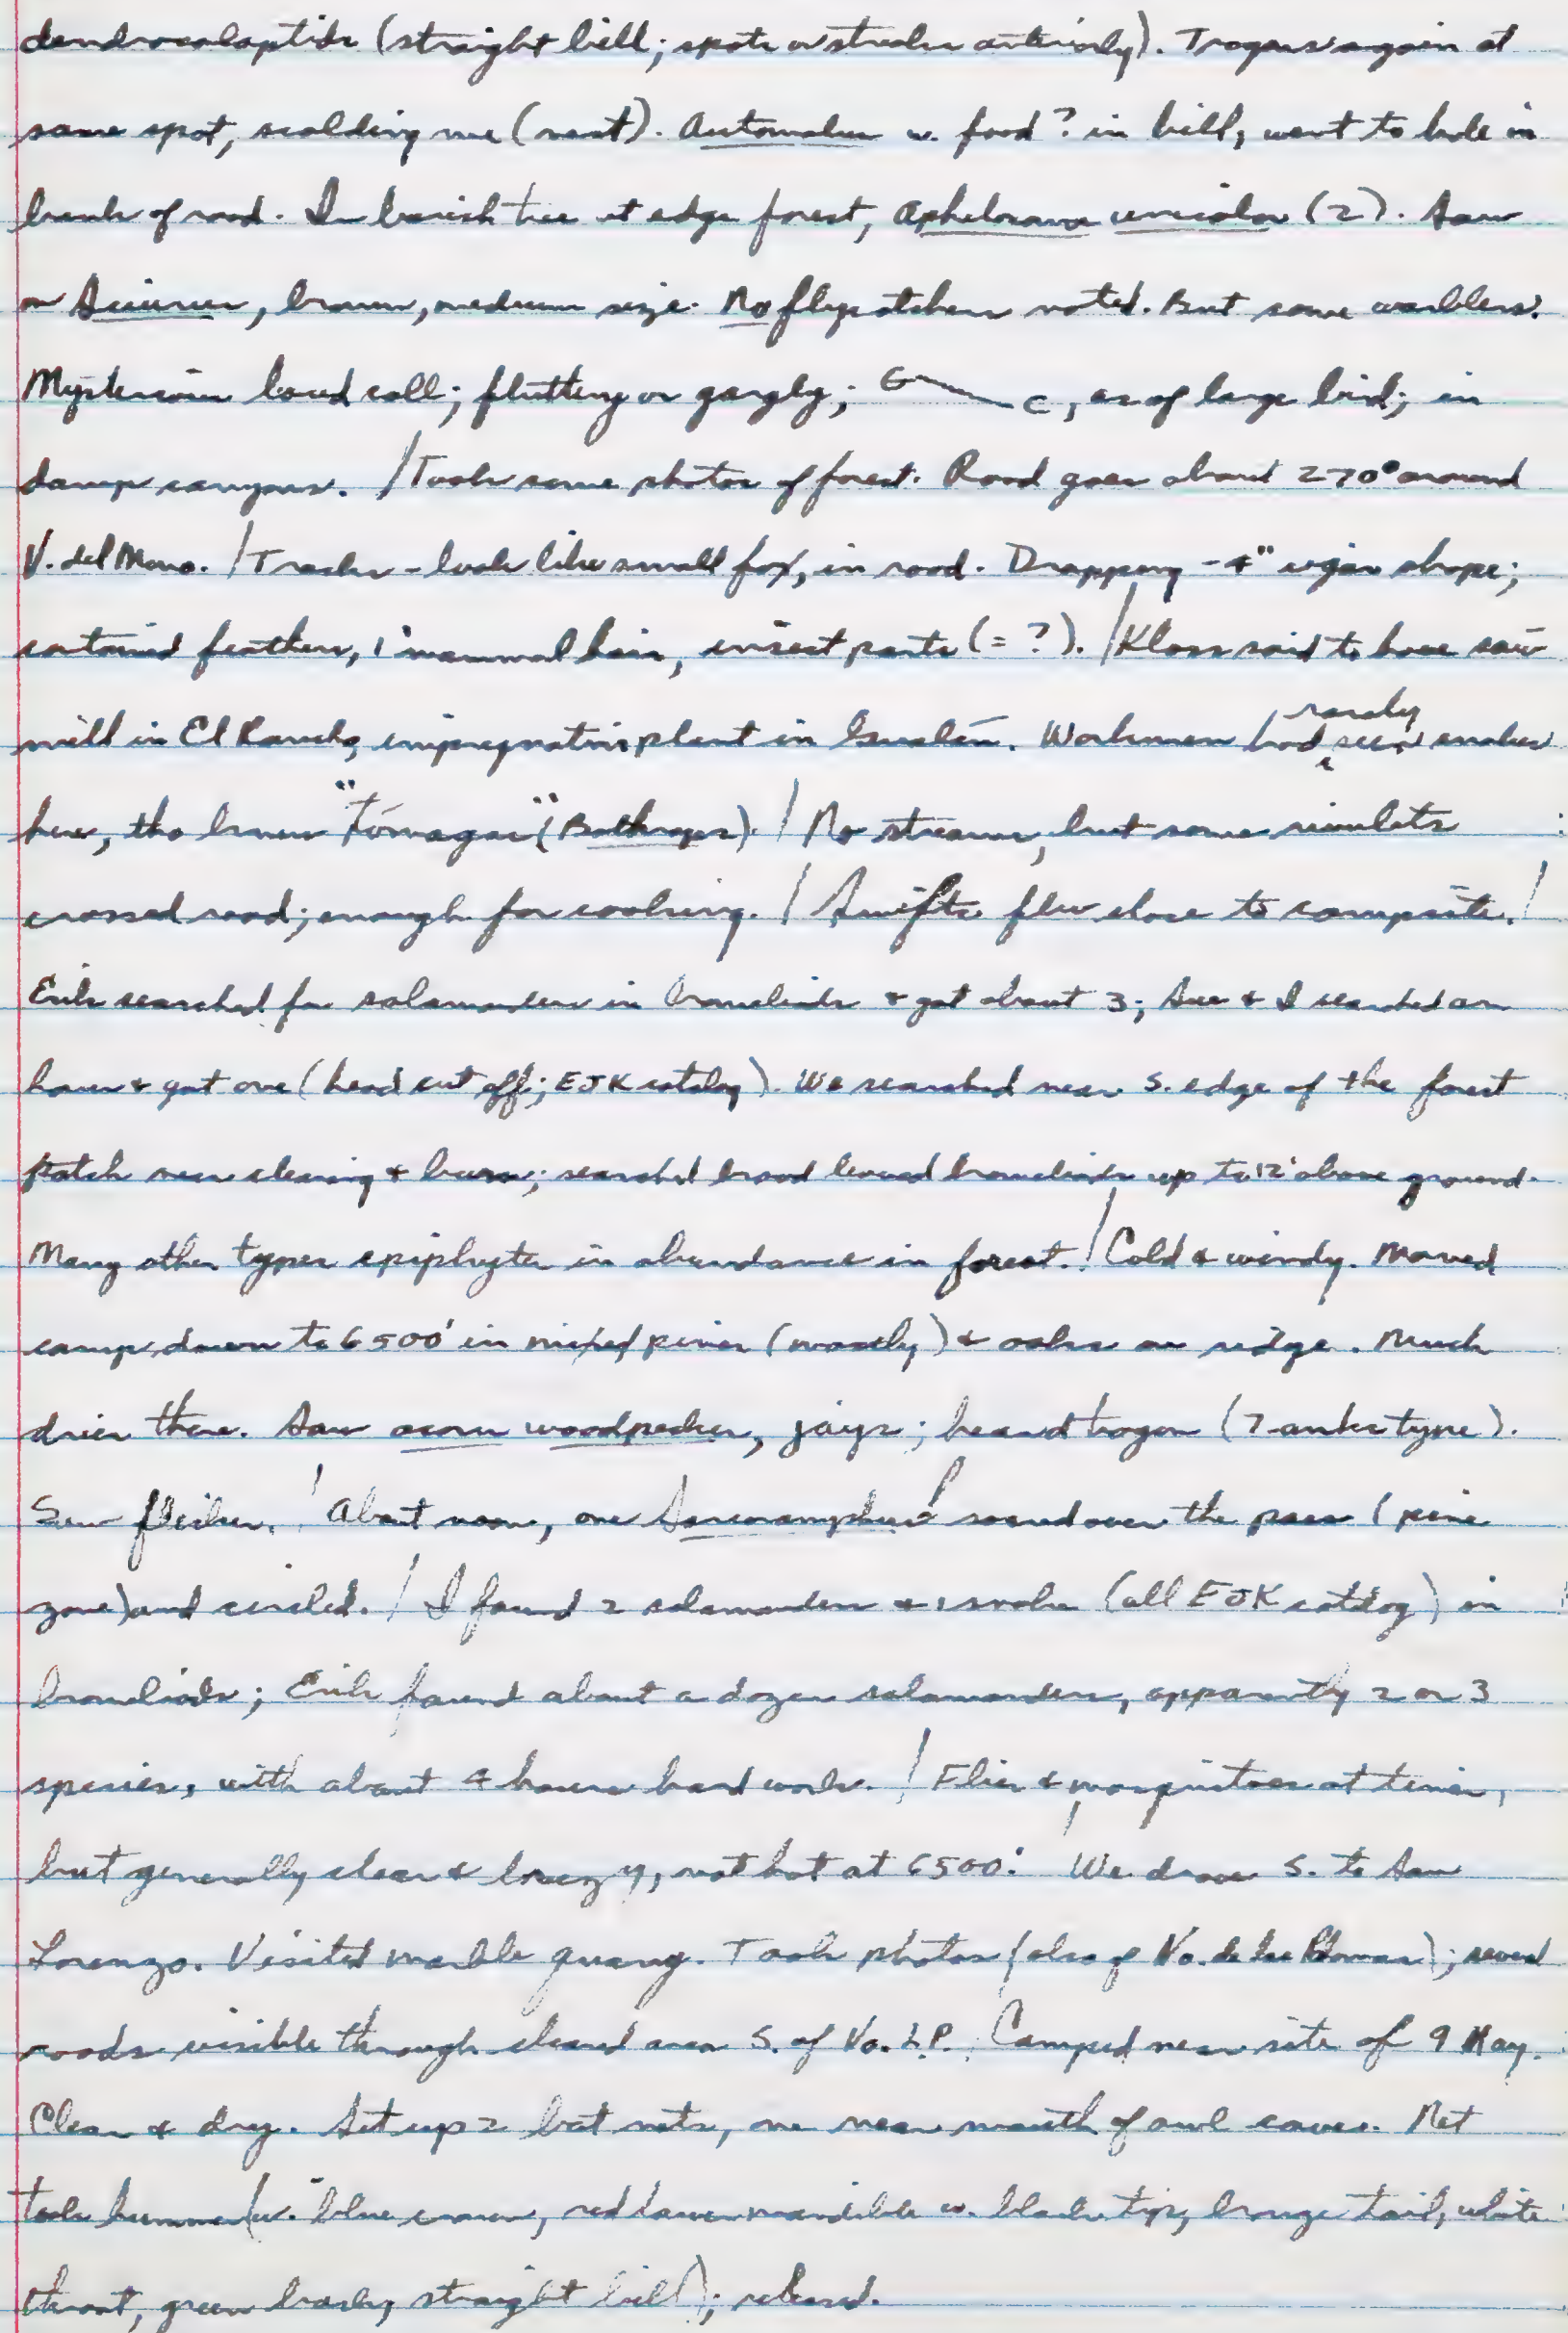 dendrocolaptids (straight bill; spots or streaks anteriorly). Trogons again at
same spot, scolding me (nest). Automolus w. food? in bill, went to hole in
bank of road. In barish tree at edge forest, Aphelocoma unicolor (2). Saw
Sciurus, brown, medium size. No flycatchers noted. But some warblers.
Mysterious loud call; fluttery or gargly; G C, as of large bird; in
damp canyons. / Took some photos of forest. Road goes about 270° around
V. del Mono. / Tracks - look like small fox, in road. Dropping - 4" cigar shape;
contained feathers, 1 mammal hair, insect parts (= ?). / Kloss said to have saw
mill in El Rancho, impregnation plant in Gualán. Workmen had rarely seen snakes
here, tho knew (Bothrops). / No streams, but some rivulets
crossed road; enough for cooking. / Swifts flew close to campsite. /
Erik searched for salamanders in bromeliads + got about 3; Sue + I searched an
hour + got one (head cut off; EJK catalog). We searched near S. edge of the forest
patch near clearing + burn; searched broad leaved bromeliads up to 12' above ground.
Many other types epiphytes in abundance in forest. / Cold & windy. Moved
camp down to 6500' in mixed pines (mostly) & oaks on ridge. Much
drier there. Saw acorn woodpecker, jays; heard trogon (7-anks type).
Saw flicker. / About noon, one Sarcoramphus soared over the pass (pine
zone) and circled. / I found 2 salamanders + 1 snake (all EJK catalog) in
bromeliads; Erik found about a dozen salamanders, apparently 2 or 3
species, with about 4 hours hard work. / Flies & mosquitoes at times,
but generally clear & breezy, not hot at 6500'. / We drove S. to San
Lorenzo. Visited marble quarry. Took photos (also of Vo. de las Palomas); several
roads visible through cleared area S. of Vo. L.P. Camped near site of 9 May.
Clear & dry. Set up 2 bat nets, one near mouth of owl caves. Net
took hummer (w. blue crown, red lower mandible w. black tip, bronze tail, white
throat, green back, straight bill); released.